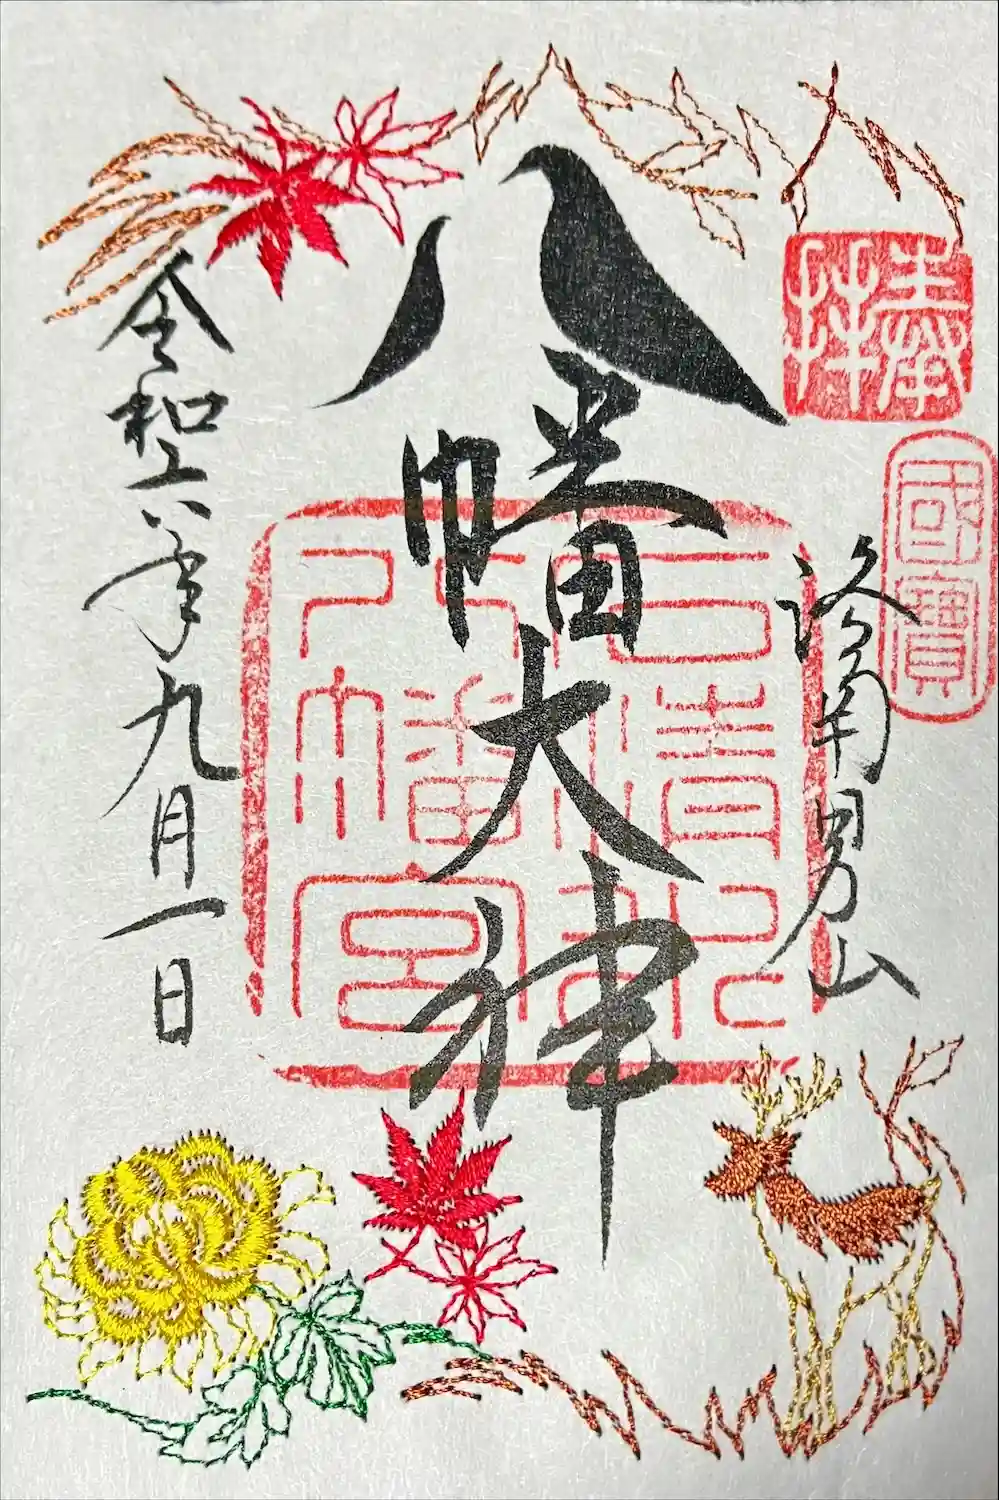 奉拝
國寶
洛南男山
八幡大神
石清水
八幡宮
令和六年九月一日